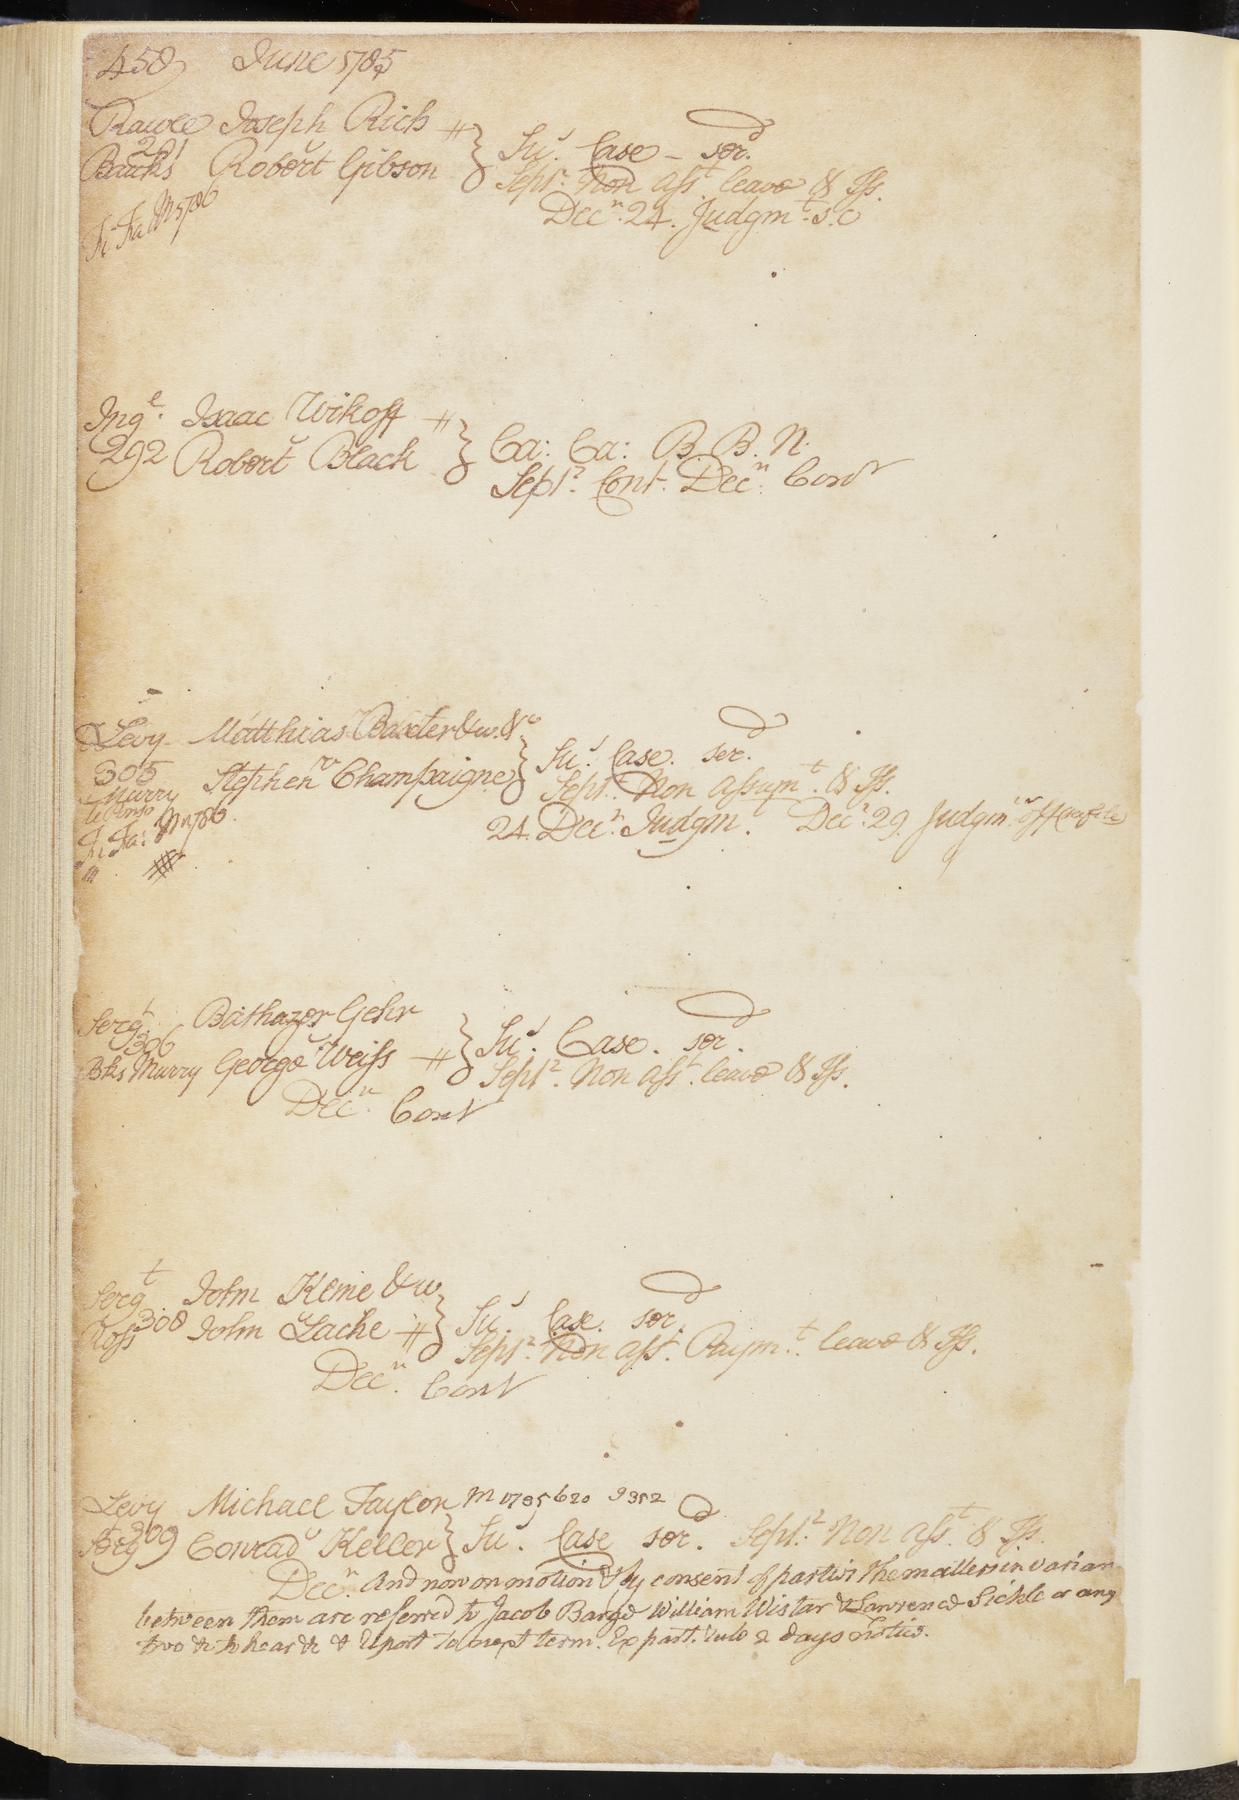 458 June 1785
Rawle Joseph Rich
291
Banks Robert Gibson
Su. Case - ser.
Sept. Non asst. leave & Iss.
Decr. 24. Judgmt. s.c
Fi Fa M 1786
Inge. Isaac Wikoff
292 Robert Black
Ca: Ca: B. B. N.
Sept. Cont. Decr. Cont
Levy Matthias Baxter &w. &c
305 Stephen Champaigne
Su. Case. ser.
Sept. Non assumt. & Iss.
24. Decr. Judgmt. Decr. 29. Judgmt. off
Murry
Fi Fa: M 1786
Sergt. Balthazer Gehr
306
Bks Murry George Weiss
Su. Case. ser.
Sept. Non asst. leave & Iss.
Decr. Cont
Sergt John Keine &w.
308
Ross John Lache
Su. Case. ser.
Sept. Non asst. Paymt. leave & Iss.
Decr. Cont
Levy Michael Taylor M 1785 620 9352
309
Serg Conrad Keller Su. Case ser. Sept. Non asst. & Iss.
Decr. And now on motion & by consent of parties the matters in varian
between them are referred to Jacob Barge William Wistar & Lawrence Sickle or any
two to hear & report to next term. Ex part. rule 2 days notice.